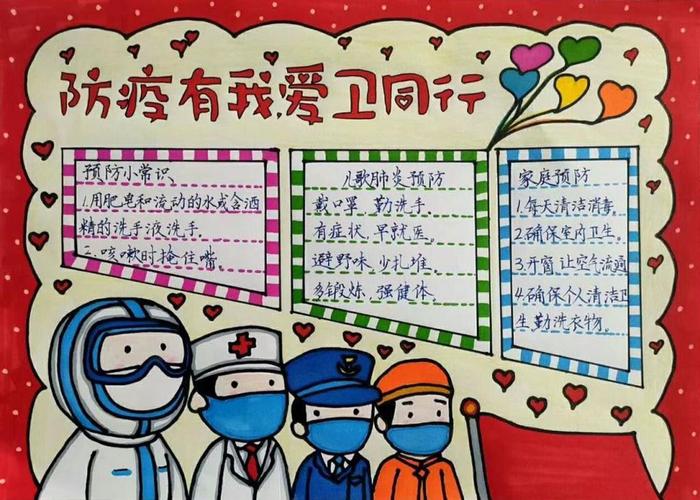 防疫有我,爱卫同行
预防小常识
1.用肥皂和流动的水或含酒
精的洗手液洗手.
二.咳嗽时掩住嘴.
儿歌肺炎预防
戴口罩.勤洗手.
有症状.早就医.
避野味.少扎堆.
多锻炼.强健体.
家庭预防
1.每天清洁消毒。
2.确保室内卫生。
3.开窗,让空气流通
4.确保个人清洁卫
生勤洗衣物。